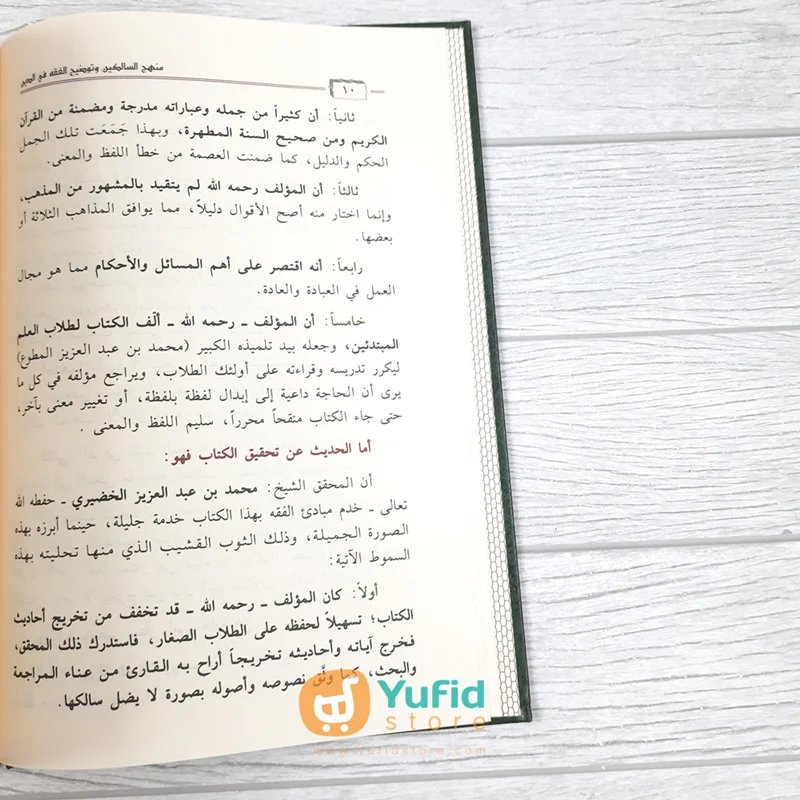 منهج السالكين وتوضيح الفقه في الدين
١٠
ثانياً: أن كثيراً من جمله وعباراته مدرجة ومضمنة من القرآن
الكريم ومن صحيح السنة المطهرة، وبهذا جَمَعَت تلك الجمل
الحكم والدليل، كما ضمنت العصمة من خطأ اللفظ والمعنى.
ثالثاً: أن المؤلف رحمه الله لم يتقيد بالمشهور من المذهب،
وإنما اختار منه أصح الأقوال دليلاً، مما يوافق المذاهب الثلاثة أو
بعضها.
رابعاً: أنه اقتصر على أهم المسائل والأحكام مما هو مجال
العمل في العبادة والعادة.
خامساً: أن المؤلف ـ رحمه الله ـ ألّف الكتاب لطلاب العلم
المبتدئين، وجعله بيد تلميذه الكبير (محمد بن عبد العزيز المطوع)
ليكرر تدريسه وقراءته على أولئك الطلاب، ويراجع مؤلفه في كل ما
يرى أن الحاجة داعية إلى إبدال لفظة بلفظة، أو تغيير معنى بآخر،
حتى جاء الكتاب منقحاً محرراً، سليم اللفظ والمعنى .
أما الحديث عن تحقيق الكتاب فهو:
أن المحقق الشيخ: محمد بن عبد العزيز الخضيري ـ حفظه الله
تعالى ـ خدم مبادئ الفقه بهذا الكتاب خدمة جليلة، حينما أبرزه بهذه
الصورة الجميلة، وذلك الثوب القشيب الذي منها تحليته بهذه
السموط الآتية:
أولاً: كان المؤلف ـ رحمه الله ـ قد تخفف من تخريج أحاديث
الكتاب؛ تسهيلاً لحفظه على الطلاب الصغار، فاستدرك ذلك المحقق،
فخرج آياته وأحاديثه تخريجاً أراح به القارئ من عناء المراجعة
والبحث، كما وثَّق نصوصه وأصوله بصورة لا يضل سالكها.
Yufid
store
www.YufidStore.com